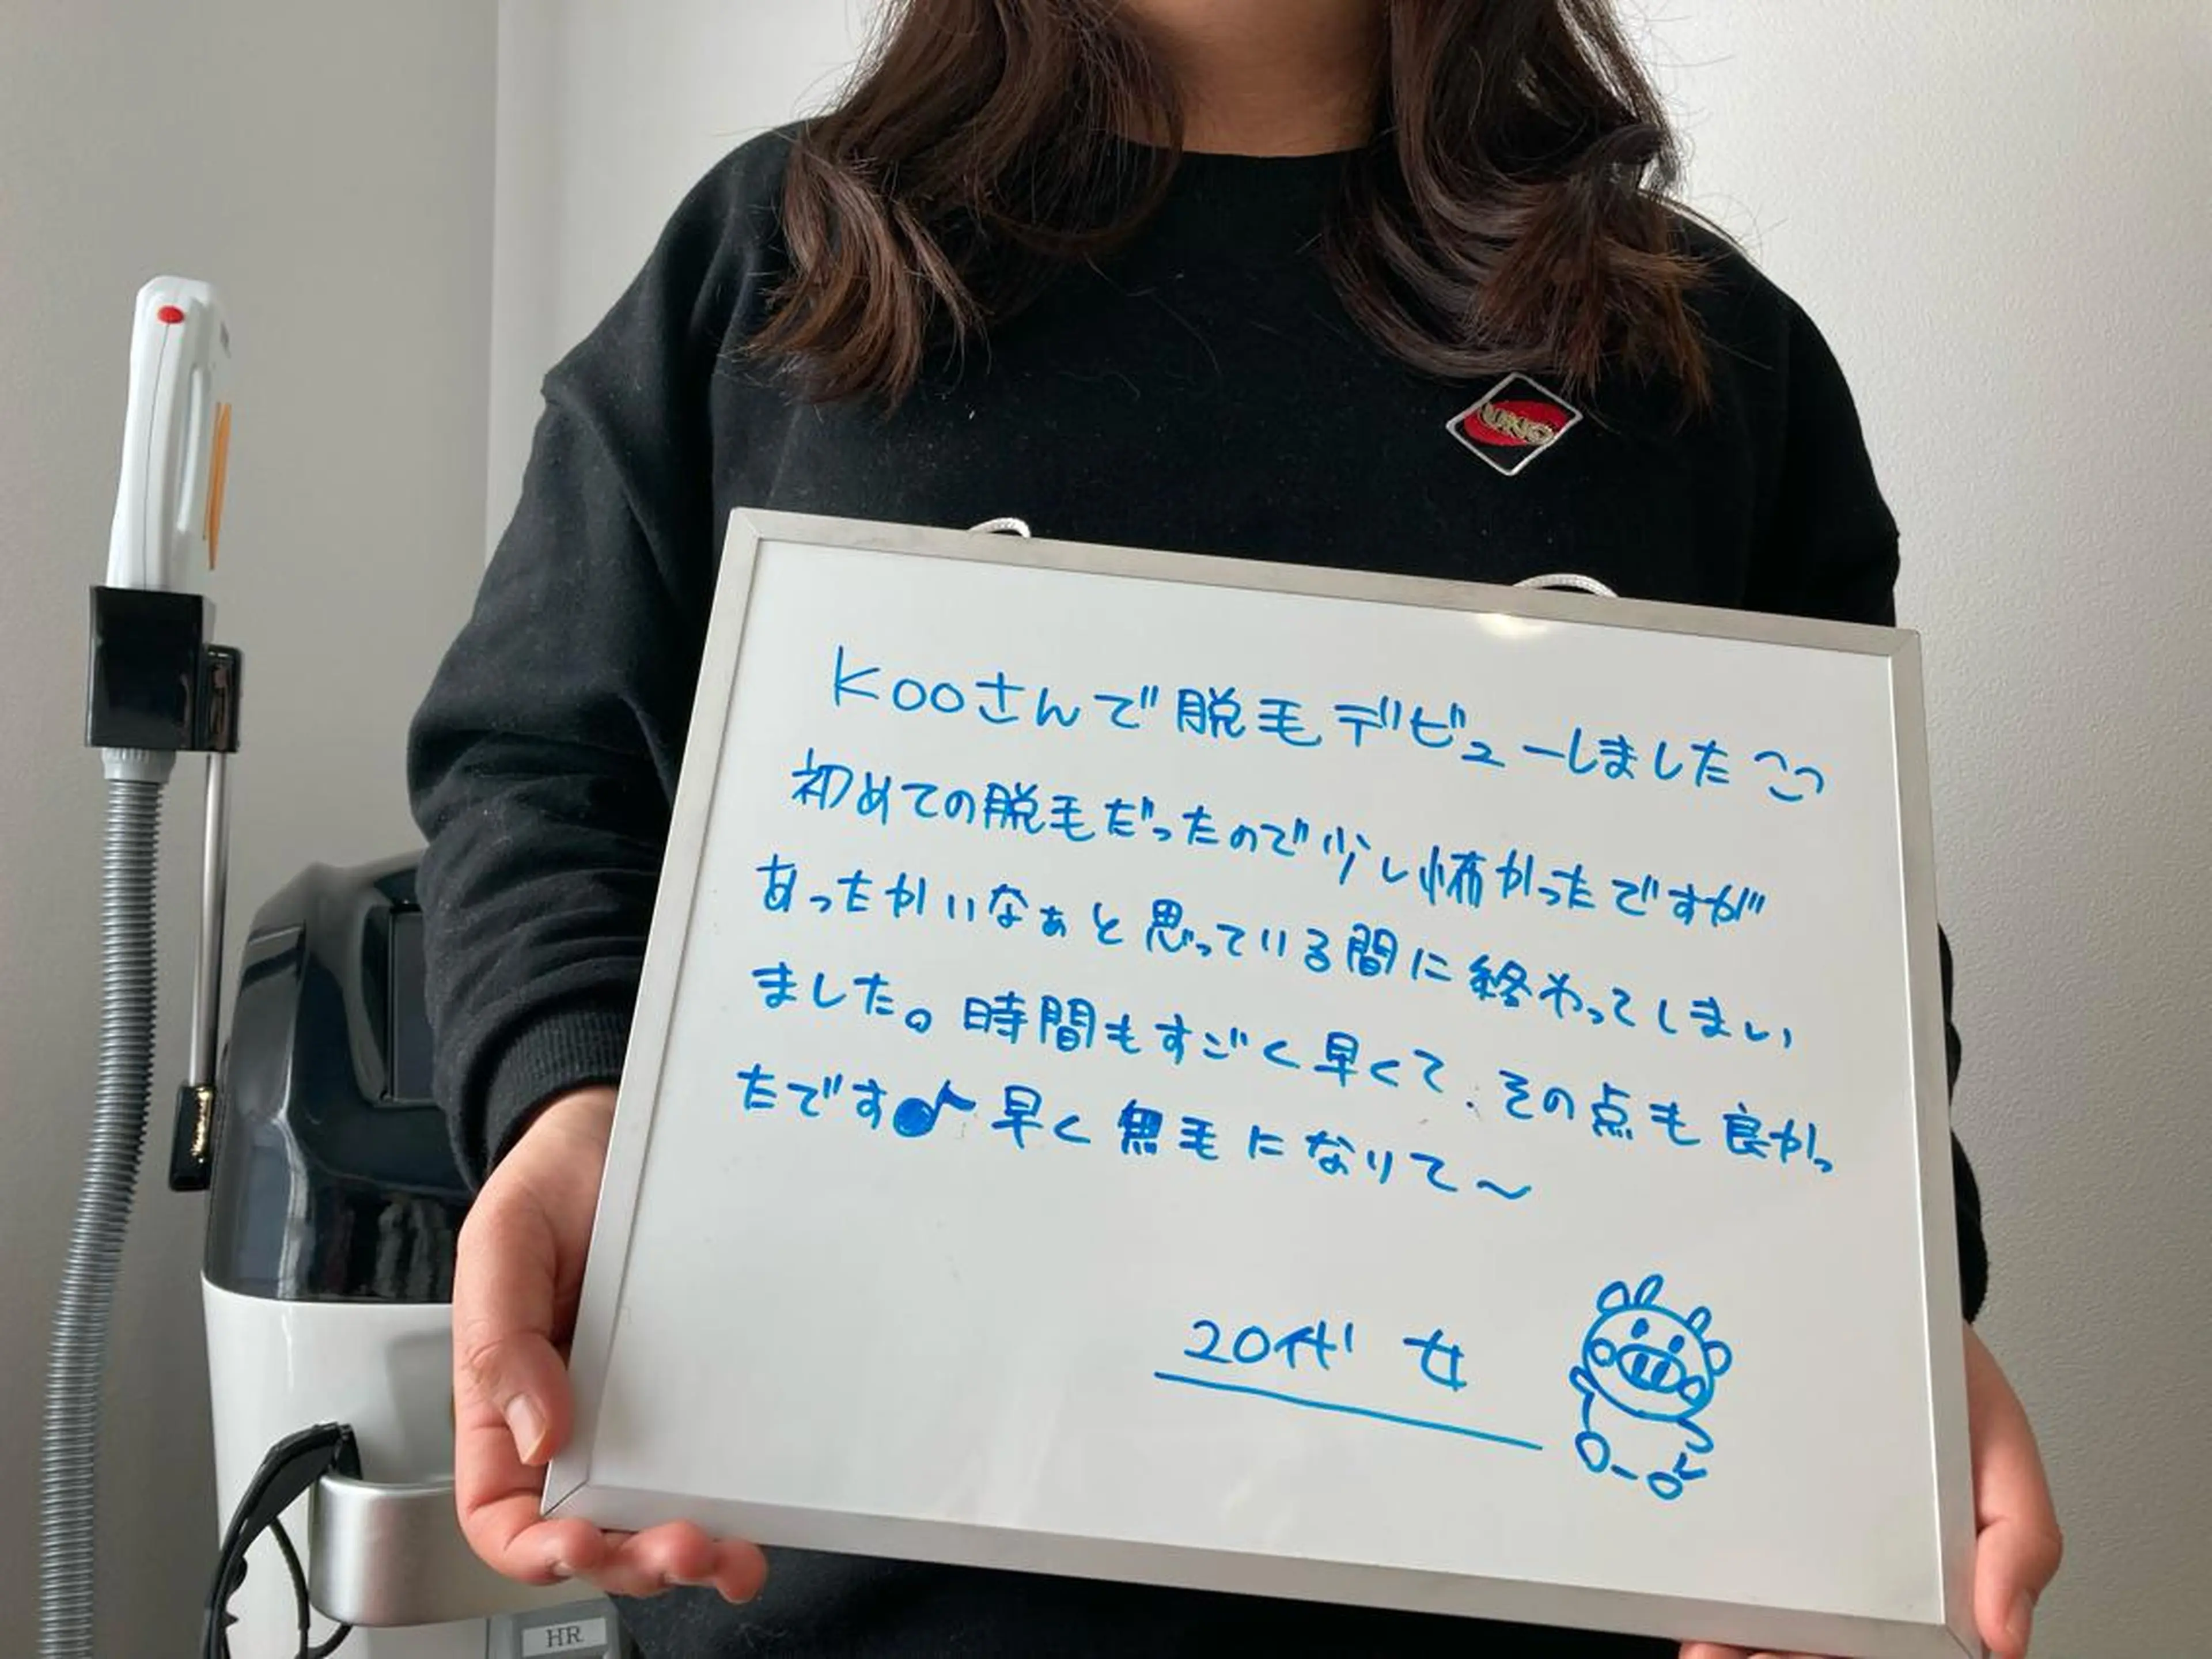 Kooさんで脱毛デビューしました
初めての脱毛だったので少し怖かったですが
あったかいなぁと思っている間に終わってしまい
ました。時間もすごく早くて、その点も良かっ
たです♪早く無毛になりて〜
20代 女
UNO
HR